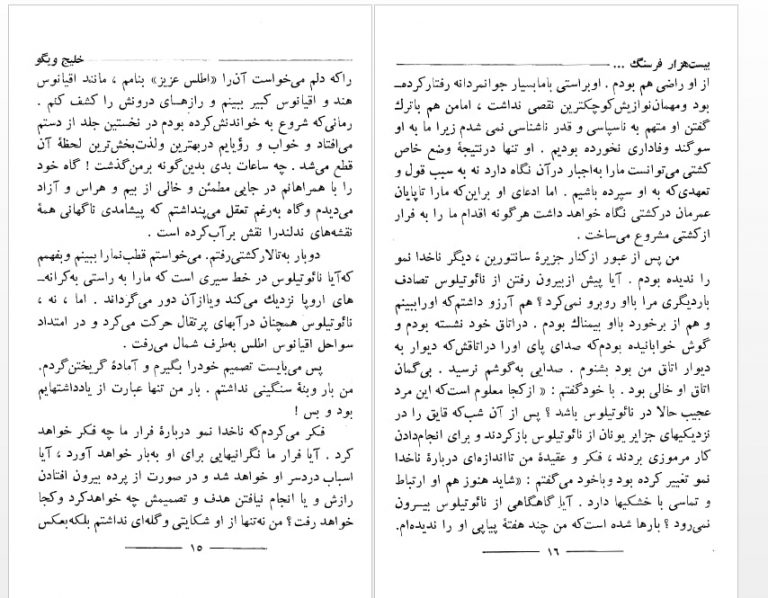 خلیج ویگو
راکه دلم می‌خواست آن‌را «اطلس عزیز» بنامم ، مانند اقیانوس
هند و اقیانوس کبیر ببینم و رازهای درونش را کشف کنم .
رمانی‌که شروع به خواندنش‌کرده بودم در نخستین جلد از دستم
می‌افتاد و خواب و رؤیایم دربهترین ولذت‌بخش‌ترین لحظهٔ آن
قطع می‌شد . چه ساعات بدی بدین‌گونه برمن‌گذشت ! گاه خود
را با همراهانم در جایی مطمئن و خالی از بیم و هراس و آزاد
می‌دیدم وگاه به‌رغم تعقل می‌پنداشتم که پیشامدی ناگهانی همهٔ
نقشه‌های ندلندرا نقش برآب‌کرده است .
دوبار به‌تالاررفتم. می‌خواستم قطب‌نمارا ببینم وبفهمم
که‌آیا نائوتیلوس در خط سیری است که مارا به راستی به‌کرانه‌ـ
های اروپا نزدیك می‌کند ویاازآن دور می‌گرداند . اما ، نه ،
نائوتیلوس همچنان درآبهای پرتقال حرکت می‌کرد و در امتداد
سواحل اقیانوس اطلس به‌طرف شمال می‌رفت .
پس می‌بایست تصمیم خودرا بگیرم و آمادهٔ گریختن‌گردم.
من بار وبنهٔ سنگینی نداشتم . بار من تنها عبارت از یادداشتهایم
بود و بس !
فکر می‌کردم‌که ناخدا نمو دربارهٔ فرار ما چه فکر خواهد
کرد . آیا فرار ما نگرانیهایی برای او به‌بار خواهد آورد ، آیا
اسباب دردسر او خواهد شد و در صورت از پرده بیرون افتادن
رازش و یا انجام نیافتن هدف و تصمیمش چه خواهدکرد وکجا
خواهد رفت؟ من نه‌تنها از او شکایتی وگله‌ای نداشتم بلکه‌بعکس
۱۵
بیست‌هزار فرسنگ ...
از او راضی هم بودم . اوبراستی بامابسیار جوانمردانه رفتارکرده‌ـ
بود ومهمان‌نوازیش‌کوچکترین نقصی نداشت ، امامن هم باترك
گفتن او متهم به ناسپاسی و قدر ناشناسی نمی شدم زیرا ما به او
سوگند وفاداری نخورده بودیم . او تنها درنتیجهٔ وضع خاص
کشتی می‌توانست مارا به‌اجبار درآن نگاه دارد نه به سبب قول و
تعهدی‌که به او سپرده باشیم . اما ادعای او براین‌که مارا تاپایان
عمرمان درکشتی نگاه خواهد داشت هرگونه اقدام ما را به فرار
ازکشتی مشروع می‌ساخت .
من پس از عبور ازکنار جزیرهٔ سانتورین ، دیگر ناخدا نمو
را ندیده بودم . آیا پیش ازبیرون رفتن از نائوتیلوس تصادف
باردیگری مرا بااو روبرو نمی‌کرد؟ هم آرزو داشتم‌که اوراببینم
و هم از برخورد بااو بیمناك بودم . دراتاق خود نشسته بودم و
گوش خوابانیده بودم‌که صدای پای اورا دراتاقش‌که دیوار به
دیوار اتاق من بود بشنوم . صدایی به‌گوشم نرسید . بی‌گمان
اتاق او خالی بود . با خودگفتم : « ازکجا معلوم است‌که این مرد
عجیب حالا در نائوتیلوس باشد ؟ پس از آن شب‌که قایق را در
نزدیکیهای جزایر یونان از نائوتیلوس بازکردند و برای انجام‌دادن
کار مرموزی بردند ، فکر و عقیدهٔ من تااندازه‌ای دربارهٔ ناخدا
نمو تغییر کرده بود وباخود می‌گفتم : «شاید هنوز هم او ارتباط
و تماسی با خشکیها دارد . آیا گاهگاهی از نائوتیلوس بیسرون
نمی‌رود ؟ بارها شده است‌که من چند هفتهٔ پیاپی او را ندیده‌ام.
۱٦